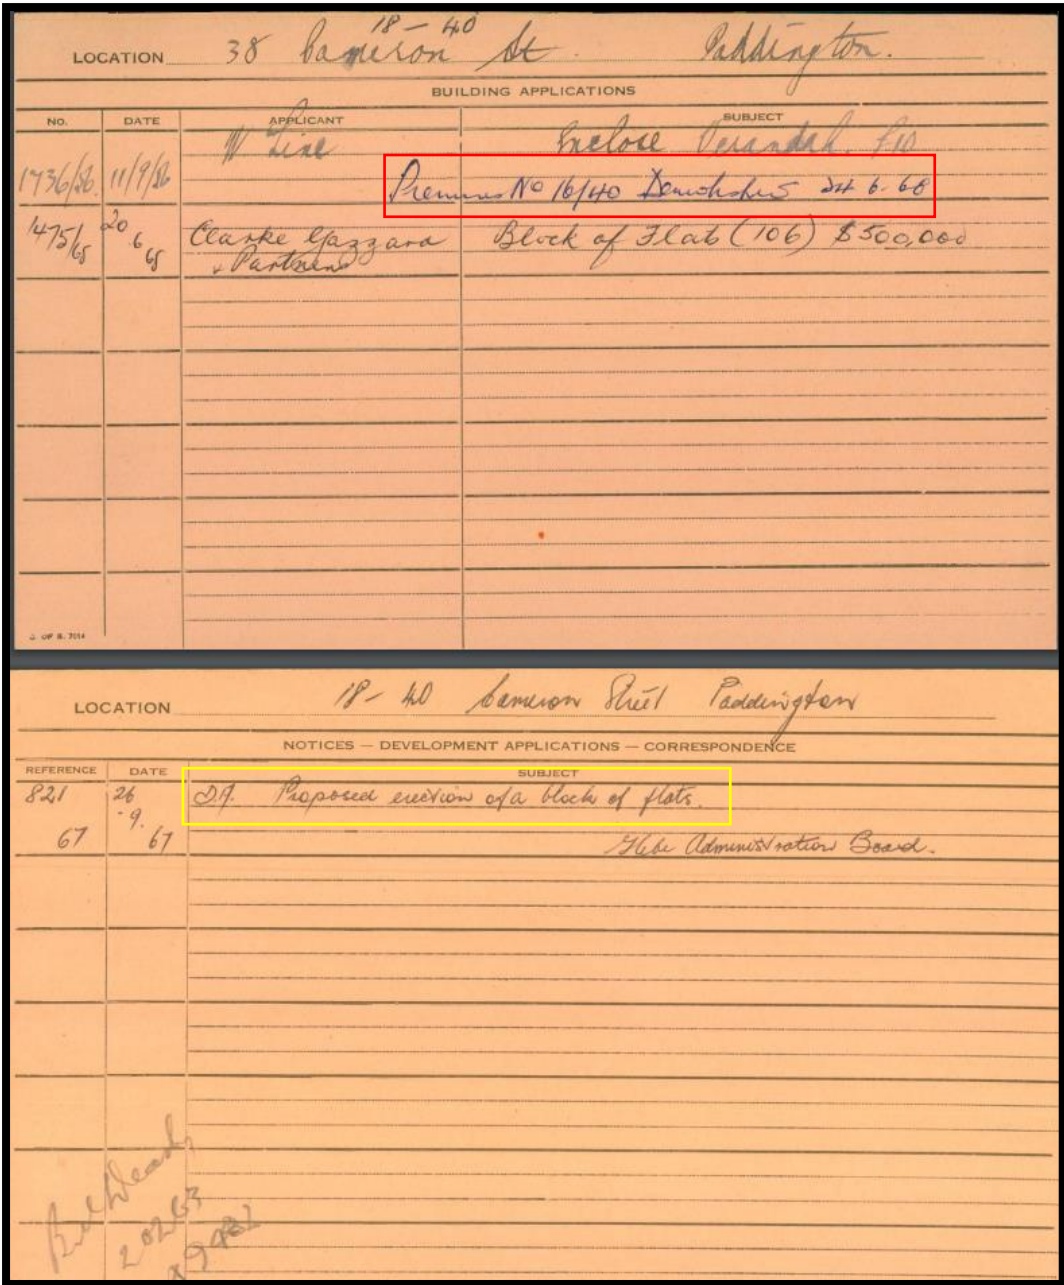 18 - 40
LOCATION 38 Cameron St. Paddington.
BUILDING APPLICATIONS
NO. DATE APPLICANT SUBJECT
W Line Enclose Verandah. £10
1736/56. 11/9/56
Premises No 16/40 Demolished 24.6.68
1475/68 20 6 68 Clarke Gazzara Block of Flats (106) $500,000
& Partners
LOCATION 18 - 40 Cameron Street Paddington
NOTICES — DEVELOPMENT APPLICATIONS — CORRESPONDENCE
REFERENCE DATE SUBJECT
821 26 D.A. Proposed erection of a block of flats.
.9.
67 67 Glebe Administration Board.
20263